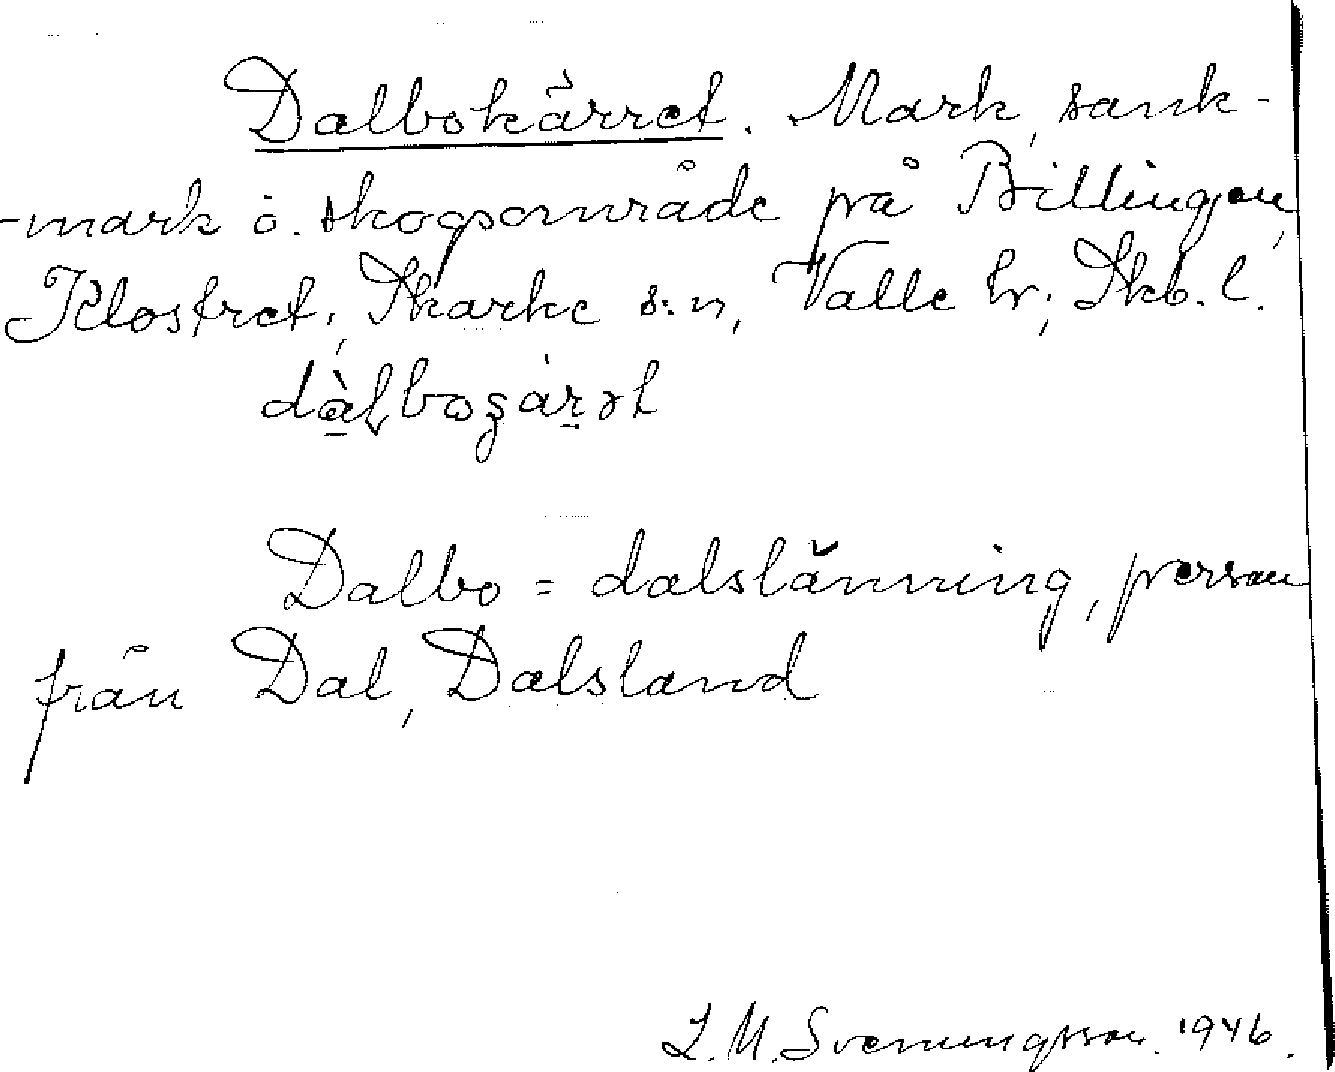 Dalbokärret. Mark, sank-
-mark o. skogsområde på Billingen,
Klostret, Skarke s:n, Valle hr; Skb. l.
Dalbo = dalslänning, person
från Dal, Dalsland
L.M. Svenungsson. 1946.